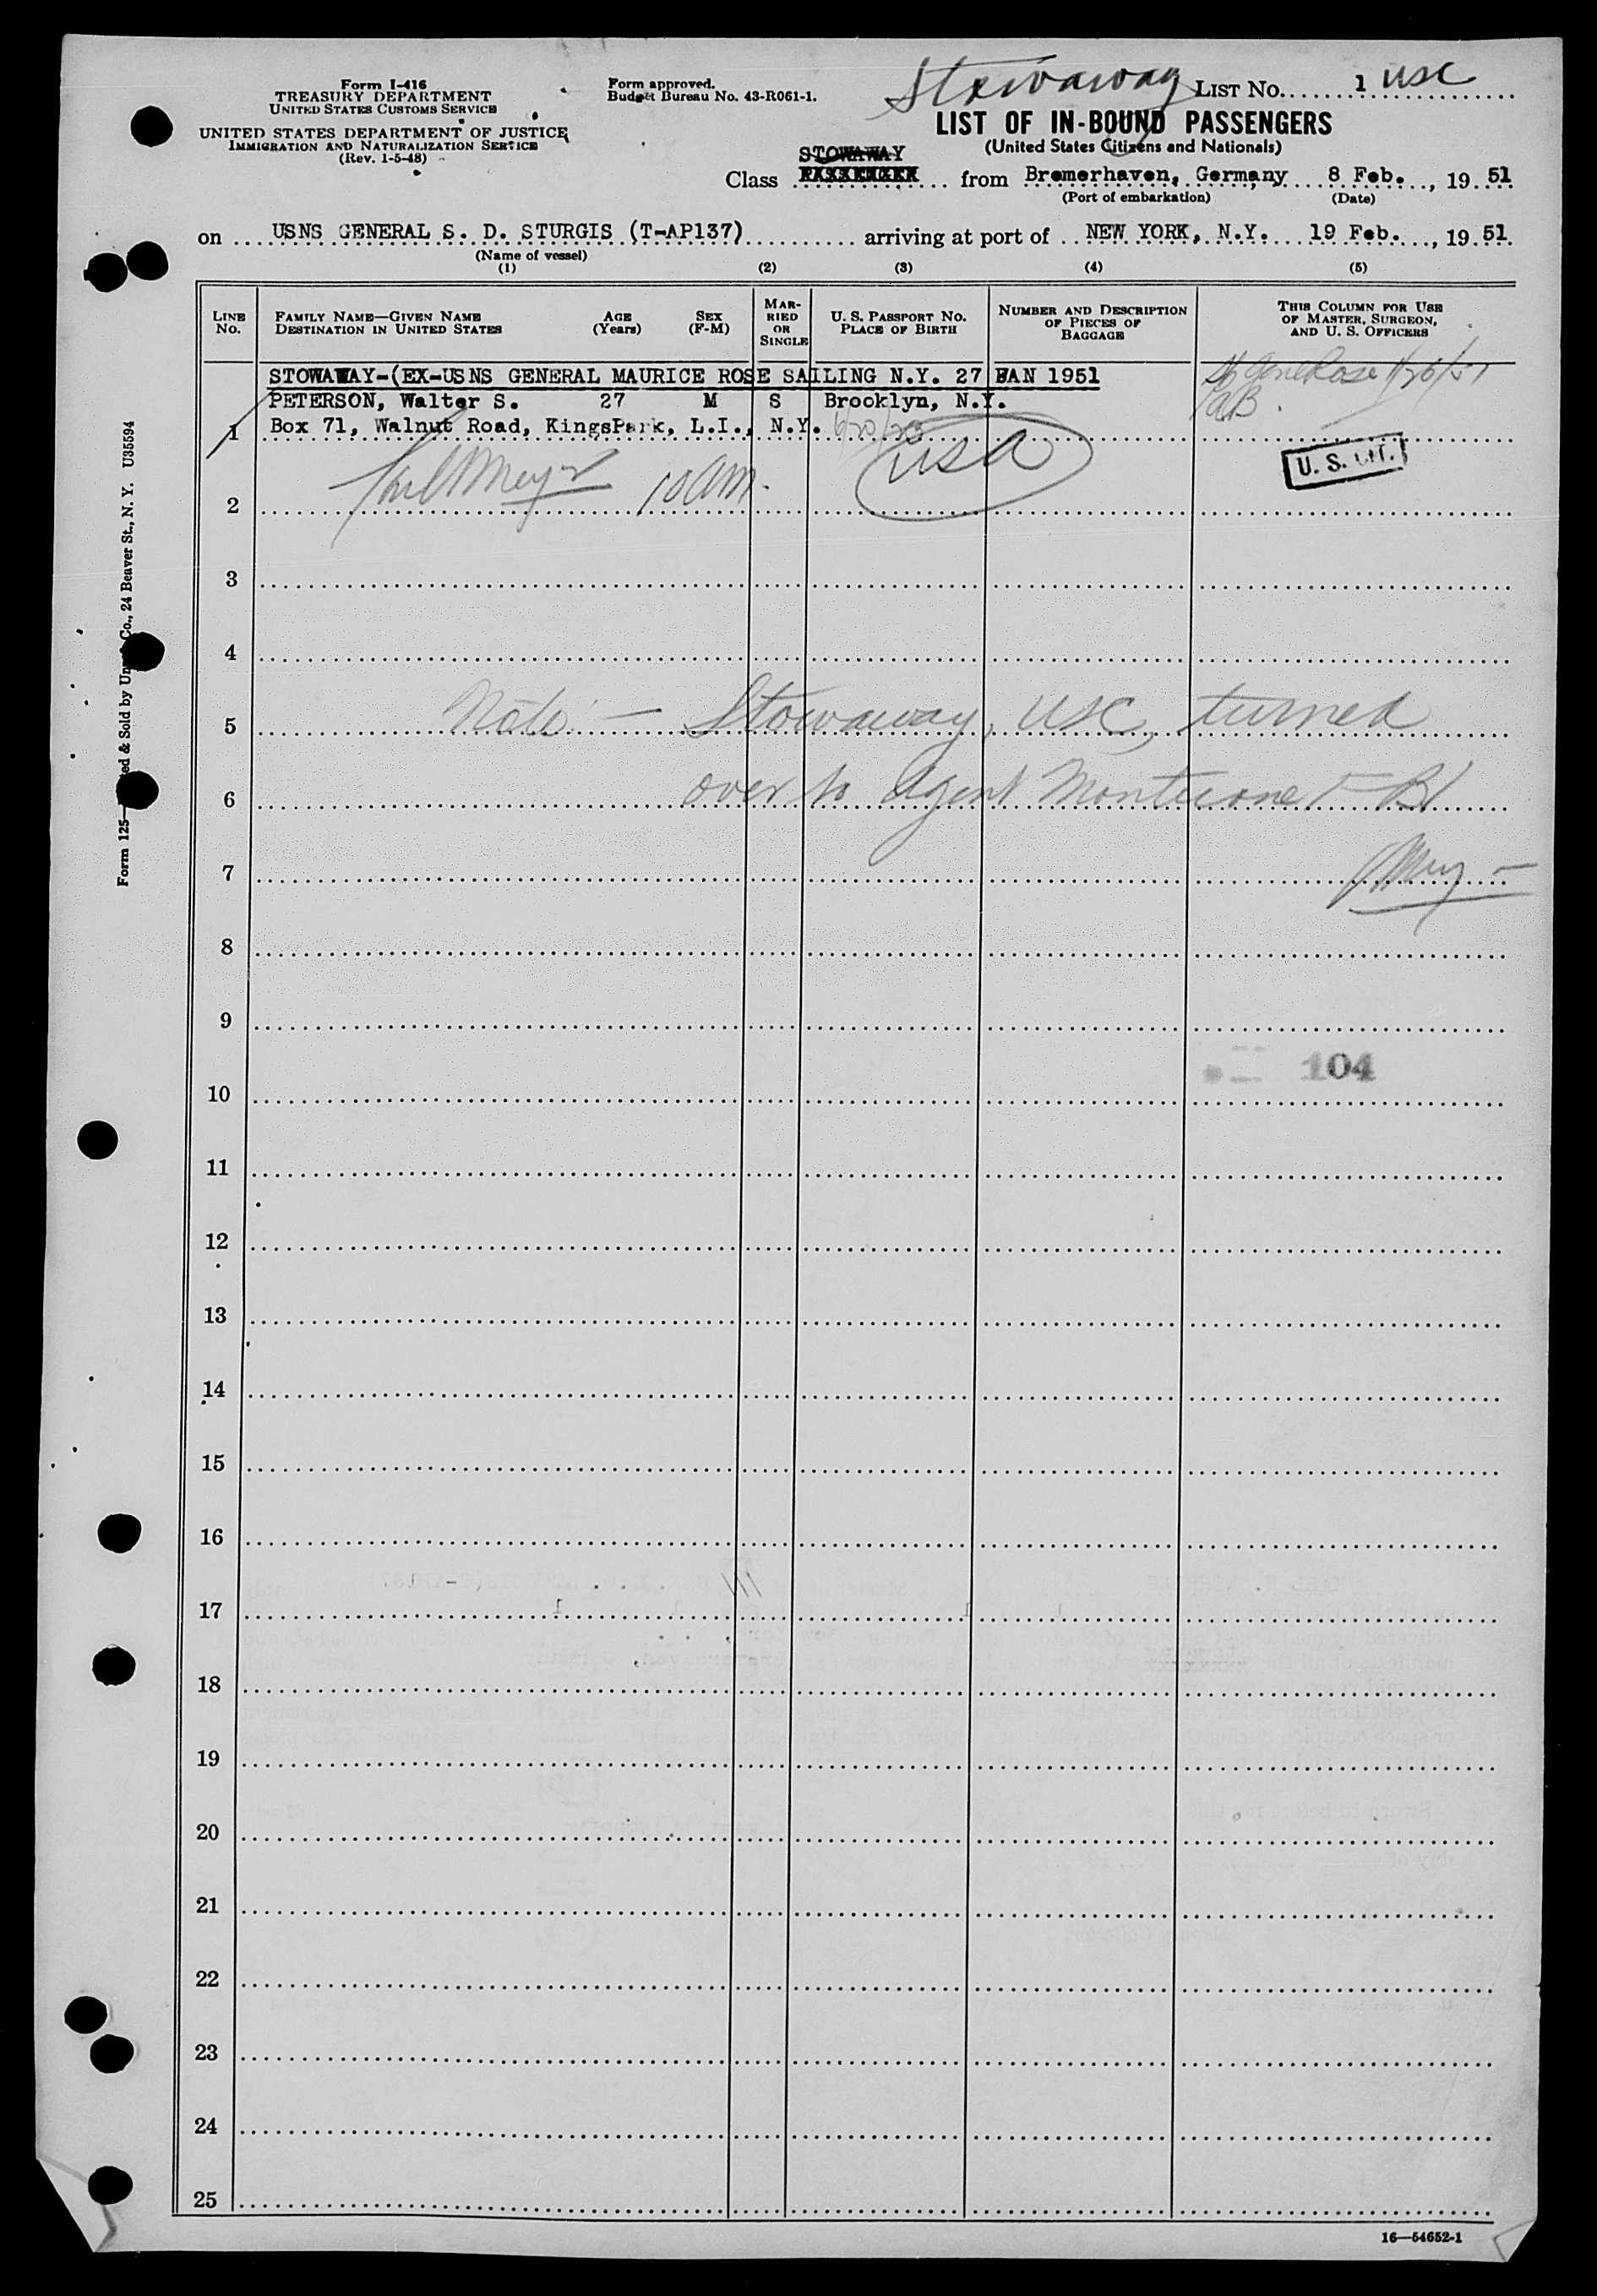 Form I-416
TREASURY DEPARTMENT
UNITED STATES CUSTOMS SERVICE
UNITED STATES DEPARTMENT OF JUSTICE
IMMIGRATION AND NATURALIZATION SERVICE
(Rev. 1-5-48)
Form approved.
Budget Bureau No. 43-R061-1.
Stowaway LIST No. 1 USC
LIST OF IN-BOUND PASSENGERS
(United States Citizens and Nationals)
STOWAWAY
Class from Bremerhaven, Germany 8 Feb., 1951
(Port of embarkation) (Date)
on USNS GENERAL S. D. STURGIS (T-AP137) arriving at port of NEW YORK, N.Y. 19 Feb., 1951
(Name of vessel)
(1) (2) (3) (4) (5)
LINE No. FAMILY NAME—GIVEN NAME DESTINATION IN UNITED STATES AGE (Years) SEX (F-M) MARRIED OR SINGLE U. S. PASSPORT NO. PLACE OF BIRTH NUMBER AND DESCRIPTION OF PIECES OF BAGGAGE THIS COLUMN FOR USE OF MASTER, SURGEON, AND U. S. OFFICERS
STOWAWAY-(EX-USNS GENERAL MAURICE ROSE SAILING N.Y. 27 JAN 1951
PETERSON, Walter S. 27 M S Brooklyn, N.Y.
1 Box 71, Walnut Road, KingsPark, L.I., N.Y.
USA
U. S. CIT.
2 10 am.
3
4
5 Note — Stowaway, USC, turned
6 over to Agent FBI
7
8
9
104
10
11
12
13
14
15
16
17
18
19
20
21
22
23
24
25
16—54652-1
Form 125 & Sold by Co., 24 Beaver St., N. Y. U35594